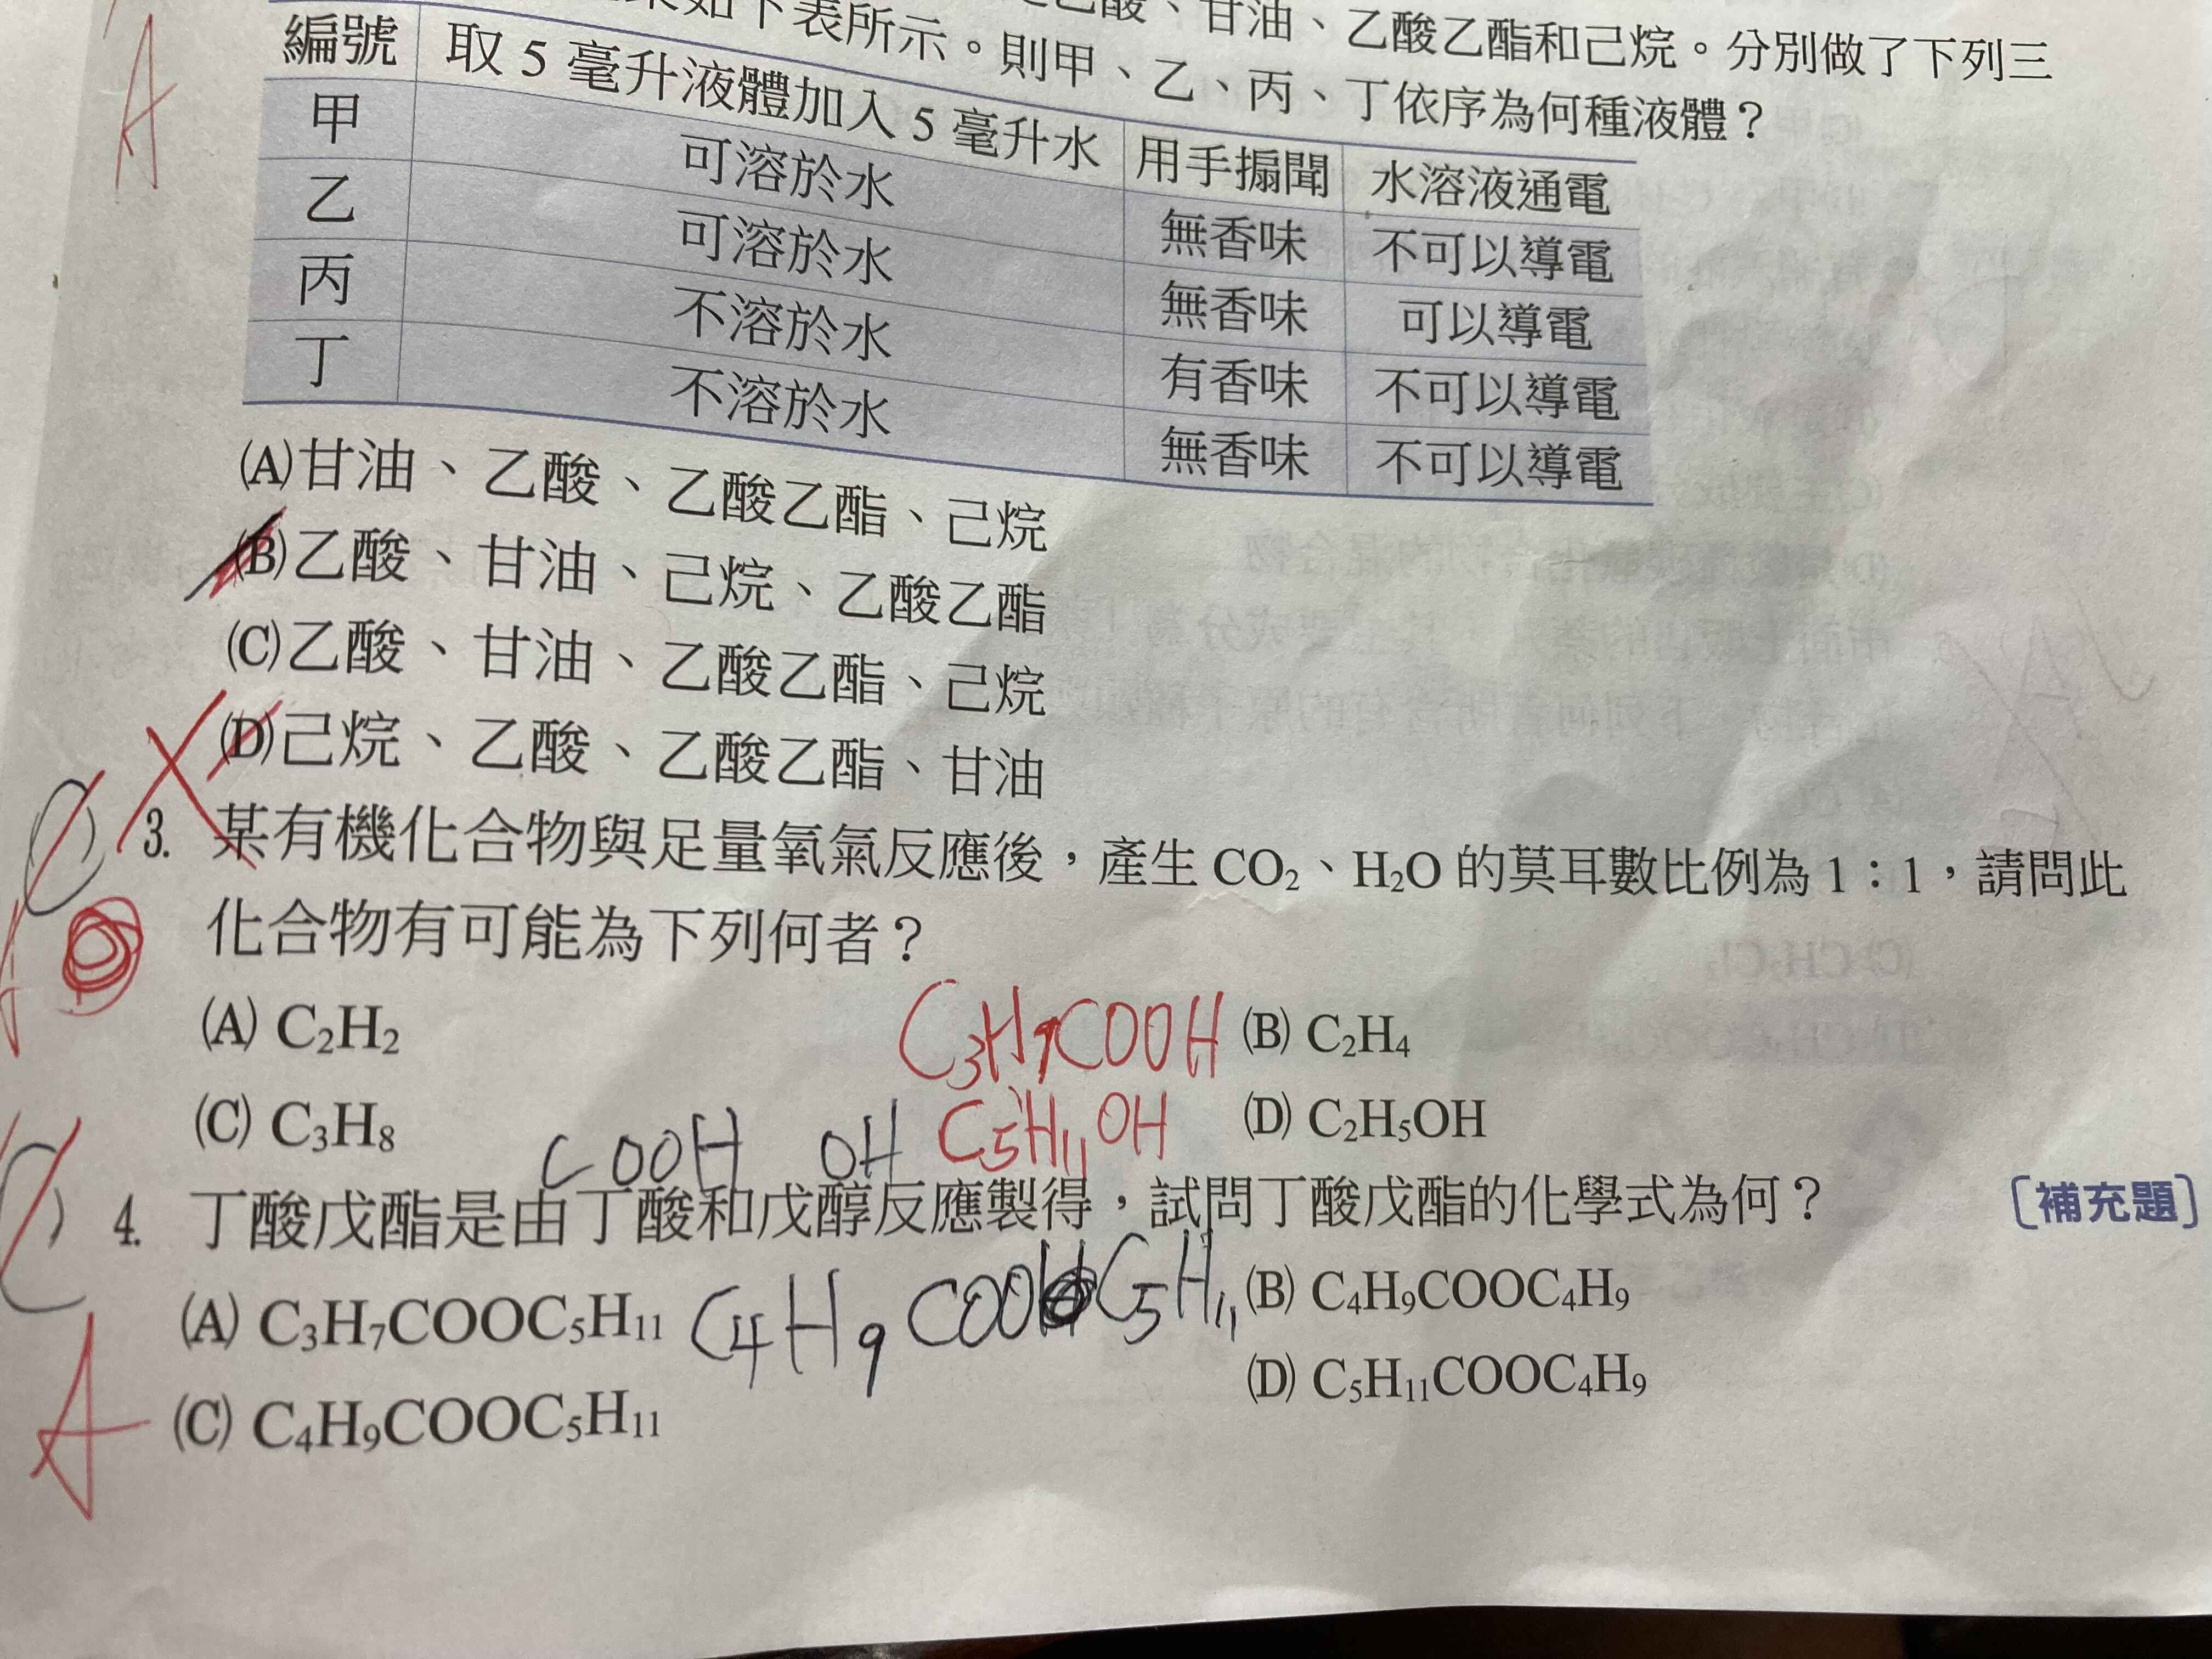 酸、甘油、乙酸乙酯和己烷。分別做了下列三
如下表所示。則甲、乙、丙、丁依序為何種液體？
編號 取 5 毫升液體加入 5 毫升水 用手搧聞 水溶液通電
甲 可溶於水 無香味 不可以導電
乙 可溶於水 無香味 可以導電
丙 不溶於水 有香味 不可以導電
丁 不溶於水 無香味 不可以導電
(A)甘油、乙酸、乙酸乙酯、己烷
(B)乙酸、甘油、己烷、乙酸乙酯
(C)乙酸、甘油、乙酸乙酯、己烷
(D)己烷、乙酸、乙酸乙酯、甘油
A
3. 某有機化合物與足量氧氣反應後，產生 CO₂、H₂O 的莫耳數比例為 1：1，請問此
化合物有可能為下列何者？
(A) C₂H₂ (B) C₂H₄
C₃H₇COOH
(C) C₃H₈ (D) C₂H₅OH
COOH OH C₅H₁₁OH
C
4. 丁酸戊酯是由丁酸和戊醇反應製得，試問丁酸戊酯的化學式為何？ 〔補充題〕
(A) C₃H₇COOC₅H₁₁ (B) C₄H₉COOC₄H₉
C₄H₉COO C₅H₁₁
(C) C₄H₉COOC₅H₁₁ (D) C₅H₁₁COOC₄H₉
A